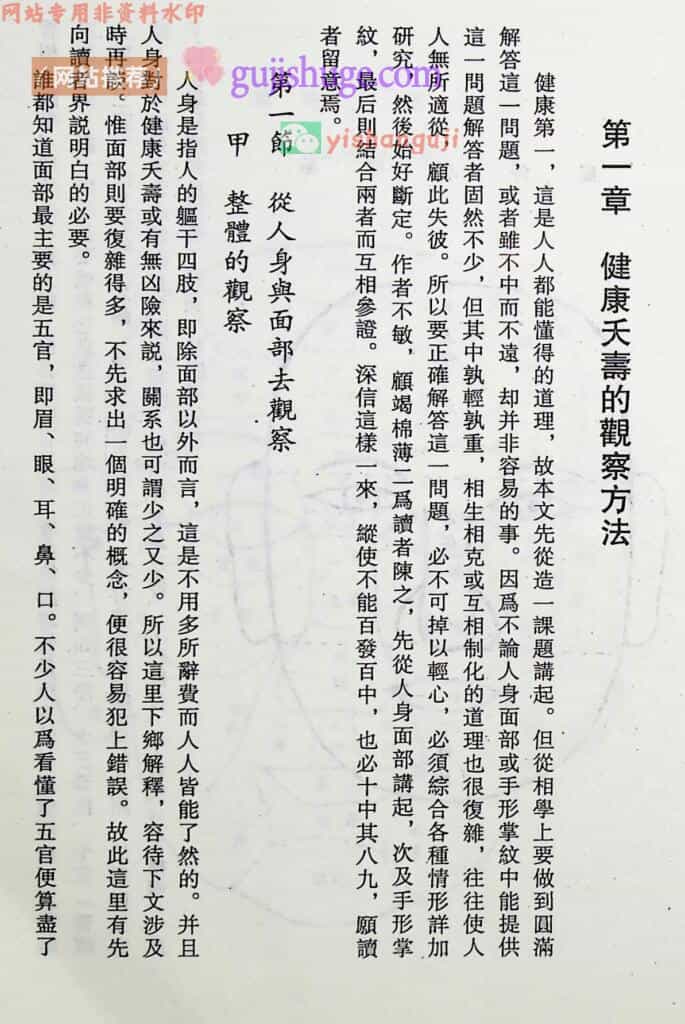 网站专用非资料水印
网站推荐
guijishuge.com
yishanguji
第一章 健康夭壽的觀察方法
健康第一，這是人人都能懂得的道理，故本文先從造一課題講起。但從相學上要做到圓滿
解答這一問題，或者雖不中而不遠，却并非容易的事。因爲不論人身面部或手形掌紋中能提供
這一問題解答者固然不少，但其中孰輕孰重，相生相克或互相制化的道理也很復雜，往往使人
人無所適從，顧此失彼。所以要正確解答這一問題，必不可掉以輕心，必須綜合各種情形詳加
研究，然後始好斷定。作者不敏，顧竭棉薄二爲讀者陳之，先從人身面部講起，次及手形掌
紋，最后則結合兩者而互相參證。深信這樣一來，縱使不能百發百中，也必十中其八九，願讀
者留意焉。
第一節 從人身與面部去觀察
甲 整體的觀察
人身是指人的軀干四肢，即除面部以外而言，這是不用多所辭費而人人皆能了然的。并且
人身對於健康夭壽或有無凶險來説，關系也可謂少之又少。所以這里下鄉解釋，容待下文涉及
時再談。惟面部則要復雜得多，不先求出一個明確的概念，便很容易犯上錯誤。故此這里有先
向讀者界説明白的必要。
誰都知道面部最主要的是五官，即眉、眼、耳、鼻、口。不少人以爲看懂了五官便算盡了